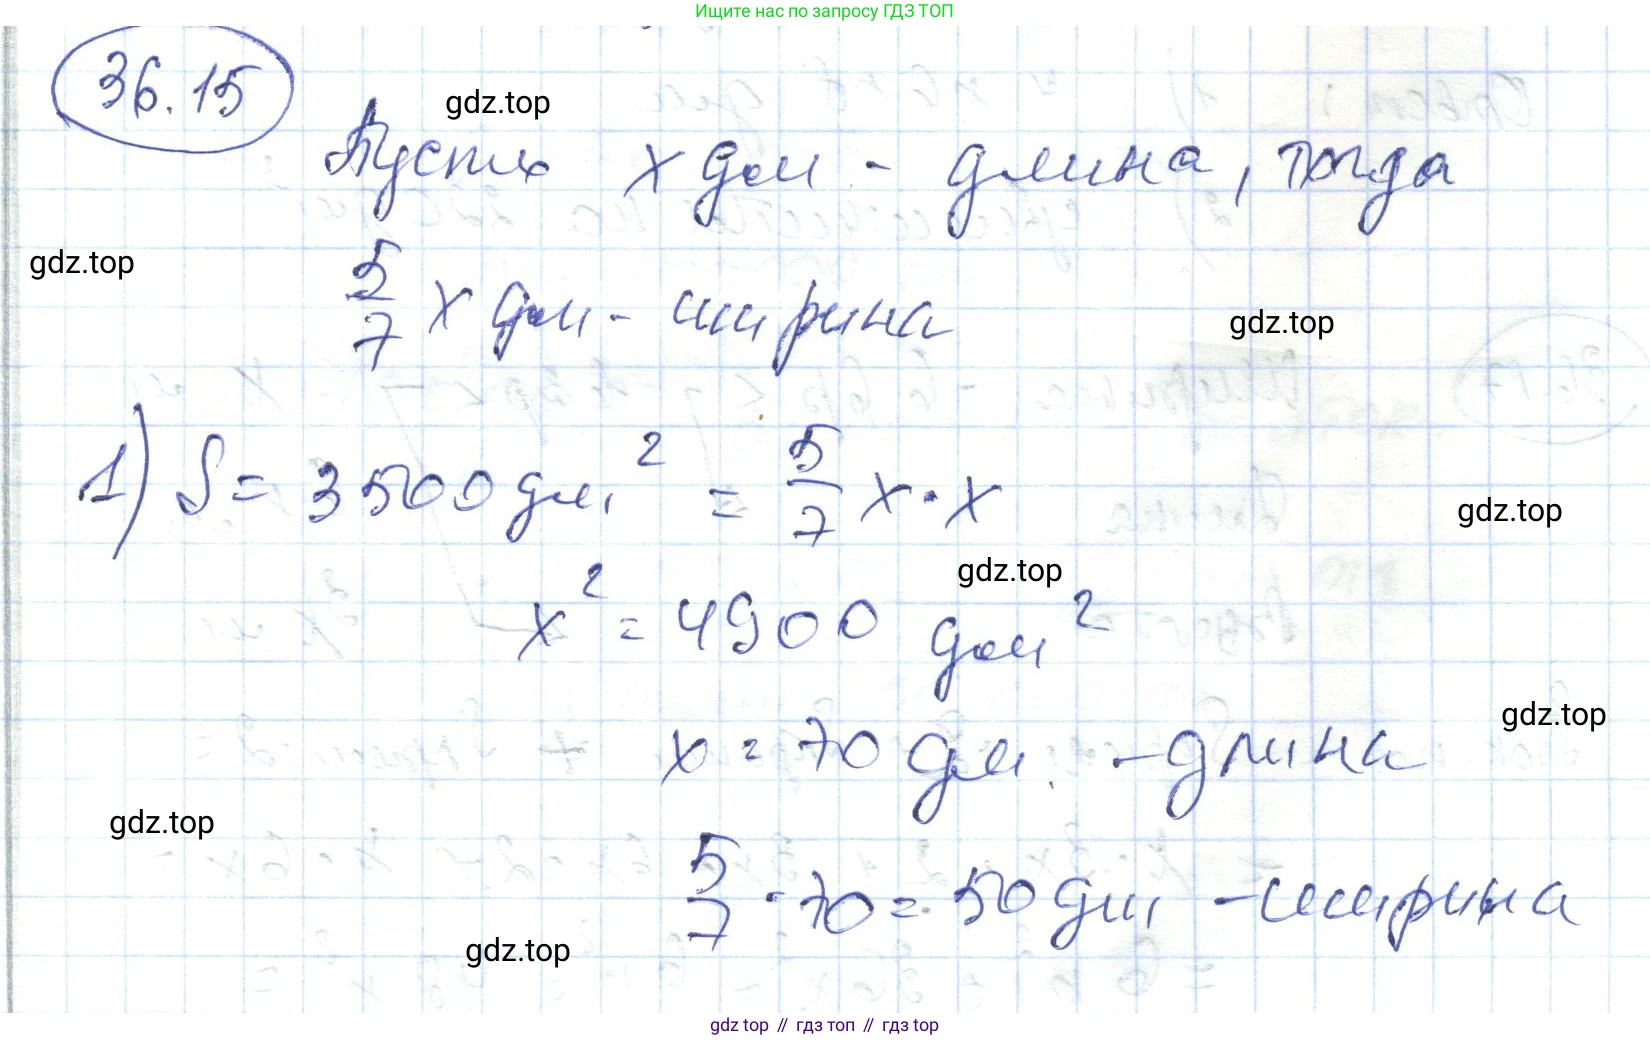 Ищите нас по запросу ГДЗ ТОП
36.15
gdz.top
Пусть x дм - длина, тогда
gdz.top
5/7 x дм - ширина
gdz.top
1) S = 3500 дм² = 5/7 x · x
gdz.top
gdz.top
x² = 4900 дм²
gdz.top
x = 70 дм. - длина
gdz.top
5/7 · 70 = 50 дм - ширина
gdz.top
gdz top // гдз топ // гдз top